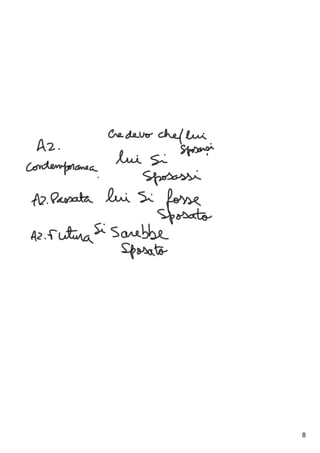 Credevo che/lui
Az. sposarsi
Contemporanea lui si
sposassi
Az. Passata lui si fosse
sposato
Az. Futura si sarebbe
sposato
8